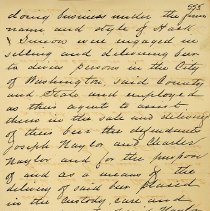 595
doing business under the firm
name and style of Hack
& Simon was engaged in
selling and delivering beer
to divers persons in the City
of Washington, said County
and State and employed
as their agents to assist
them in the sale and delivery
of their beer the defendants
Joseph Naylor and Charles
Naylor and for the purpose
of and as a means of the
delivery of said beer placed
in the custody care and